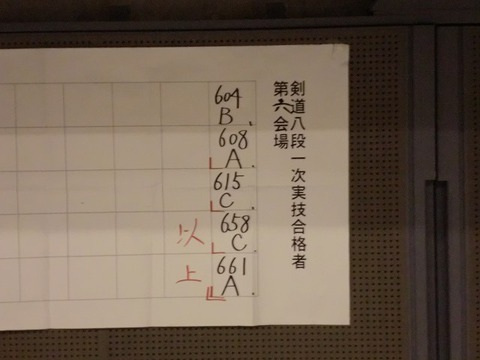 剣道八段一次実技合格者
第六会場
604
B
608
A
615
C
658
C
661
A
以上